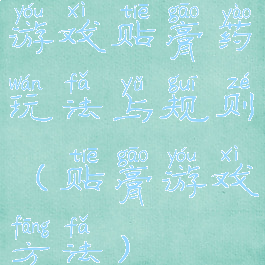 yóu xì tiē gāo yào
游戏贴膏药
wán fǎ yǔ guī zé
玩法与规则
tiē gāo yóu xì
（贴膏游戏
fāng fǎ
方法）